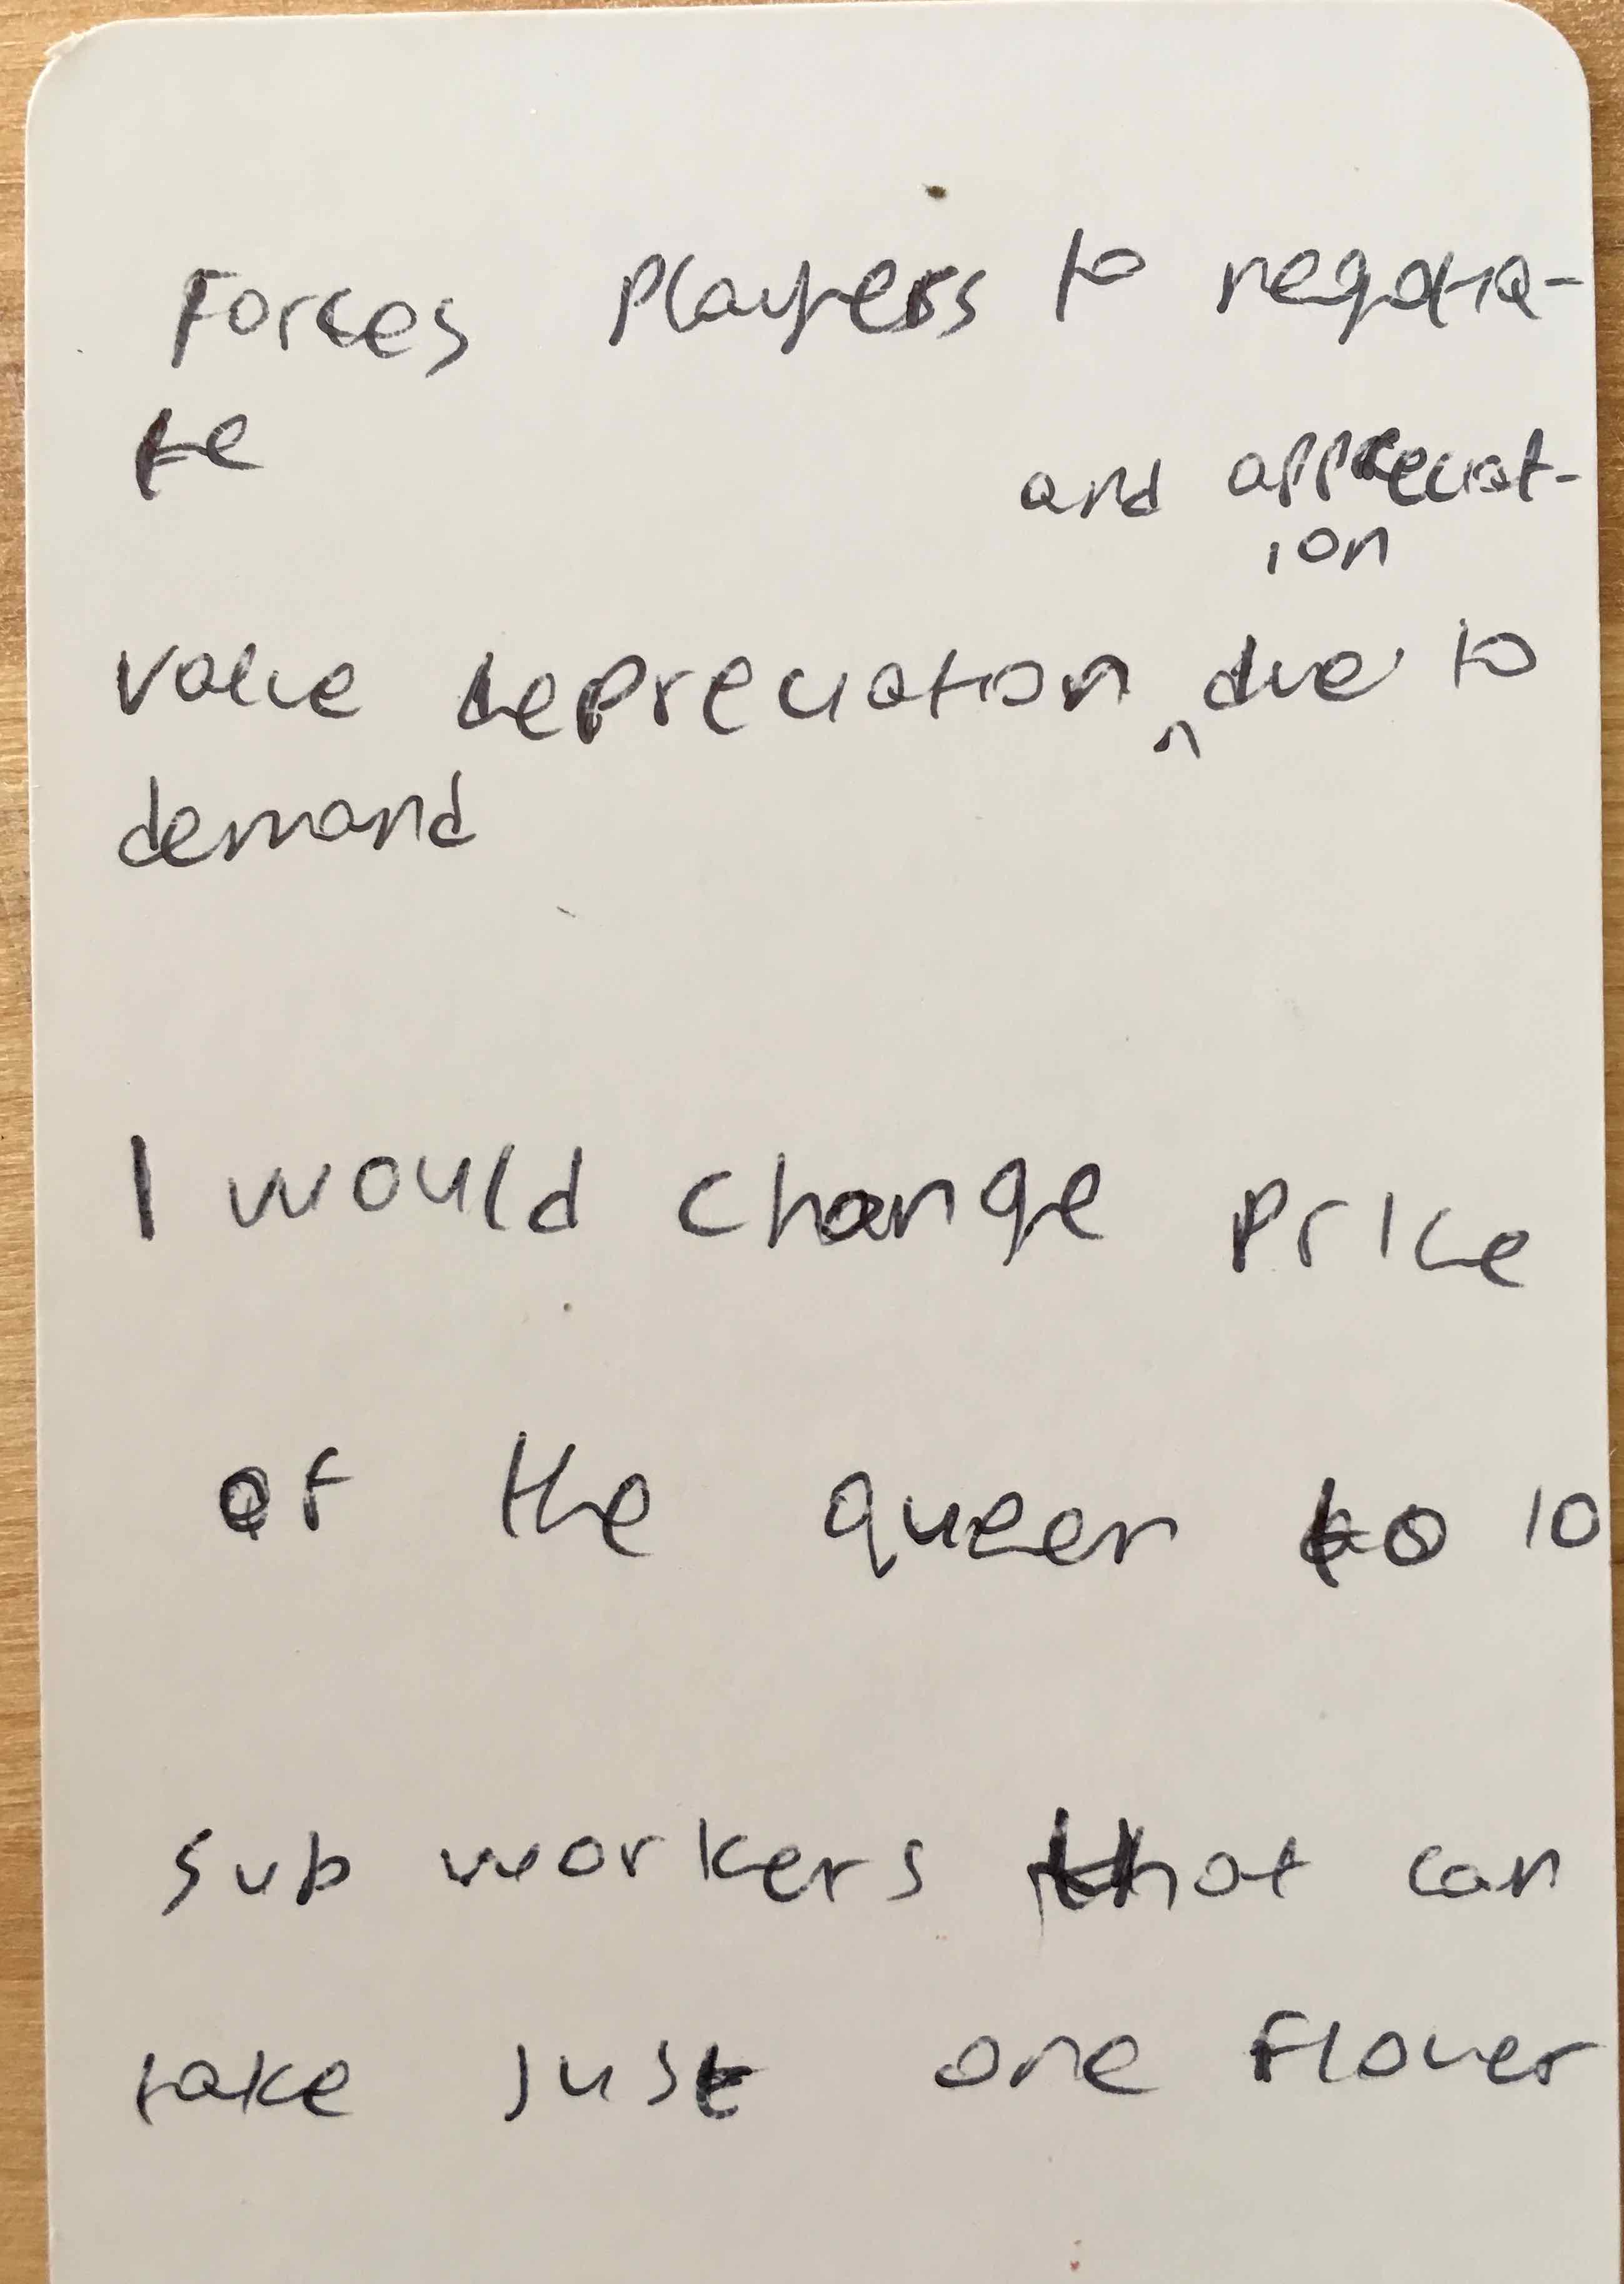 Forces Players to negotia-
te
and appreciat-
ion
value depreciation ^ due to
demand
I would change price
of the queen to 10
sub workers that can
take just one flower